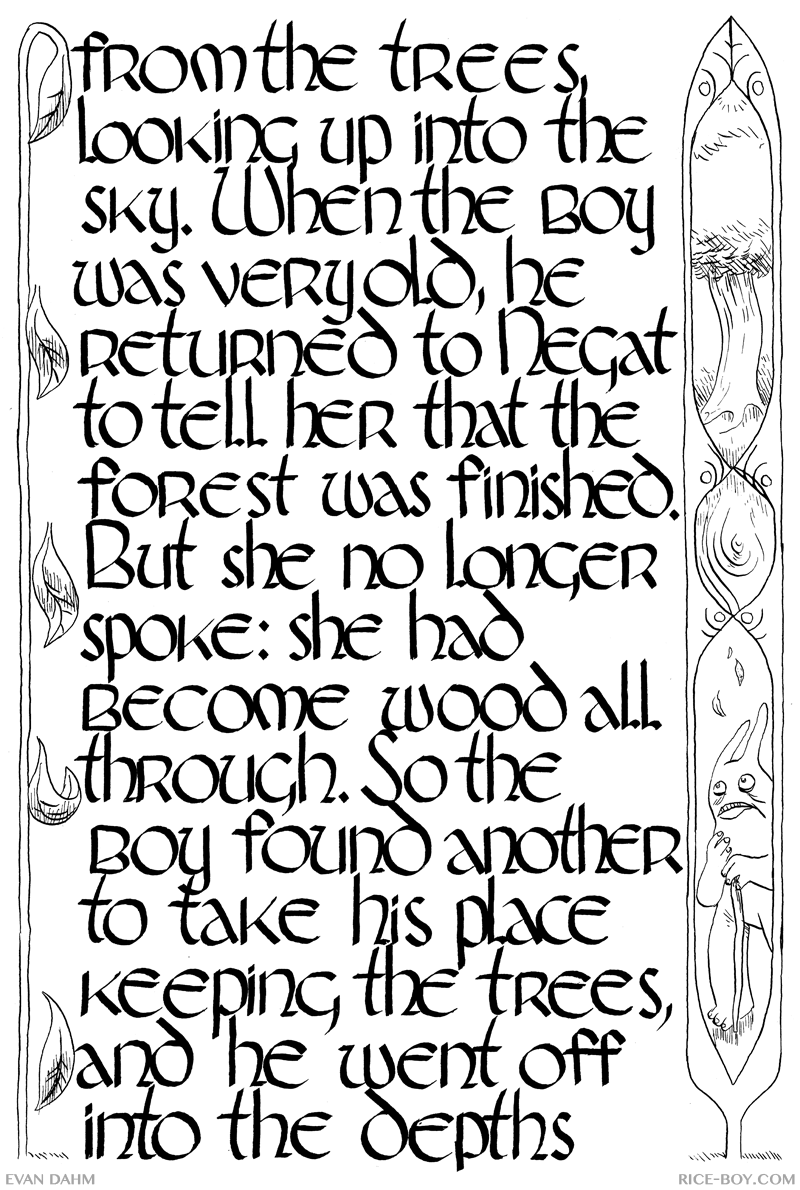 from the trees,
looking up into the
sky. When the boy
was very old, he
returned to Negat
to tell her that the
forest was finished.
But she no longer
spoke: she had
become wood all
through. So the
boy found another
to take his place
keeping the trees,
and he went off
into the depths
EVAN DAHM
RICE-BOY.COM